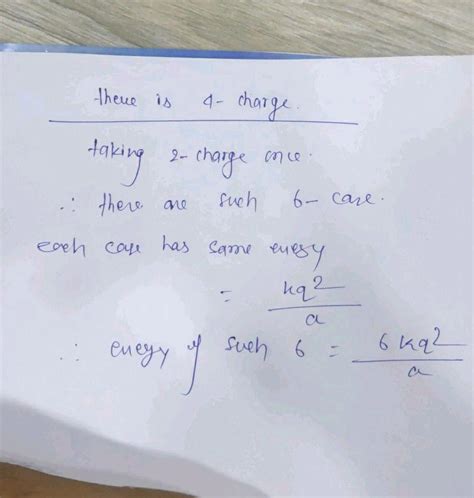 there is 4- charge.
taking 2-charge once.
∴ there are such 6- case.
each case has same energy
= kq²/a
∴ energy of such 6 = 6kq²/a